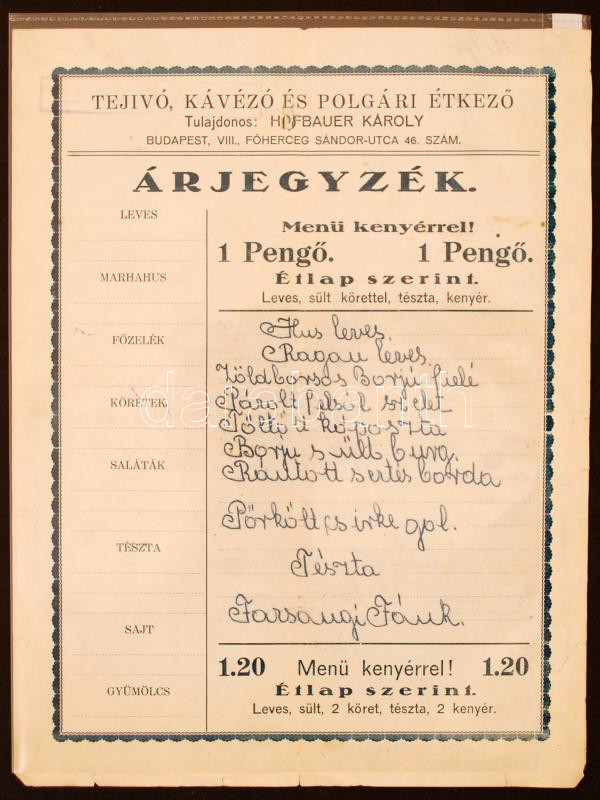 TEJIVÓ, KÁVÉZÓ ÉS POLGÁRI ÉTKEZŐ
Tulajdonos: HOFBAUER KÁROLY
BUDAPEST, VIII., FŐHERCEG SÁNDOR-UTCA 46. SZÁM.
ÁRJEGYZÉK.
LEVES
MARHAHUS
FŐZELÉK
KÖRETEK
SALÁTÁK
TÉSZTA
SAJT
GYÜMÖLCS
Menü kenyérrel!
1 Pengő. 1 Pengő.
Étlap szerint.
Leves, sült körettel, tészta, kenyér.
Hus leves
Ragau leves
Zöldborsós Borjú
Párolt felsál szelet
Töltött káposzta
Borju sült burg.
Rántott sertés borda
Pörkölt csirke gal.
Tészta
Farsangi Fánk.
1.20 Menü kenyérrel! 1.20
Étlap szerint.
Leves, sült, 2 köret, tészta, 2 kenyér.
darabanth